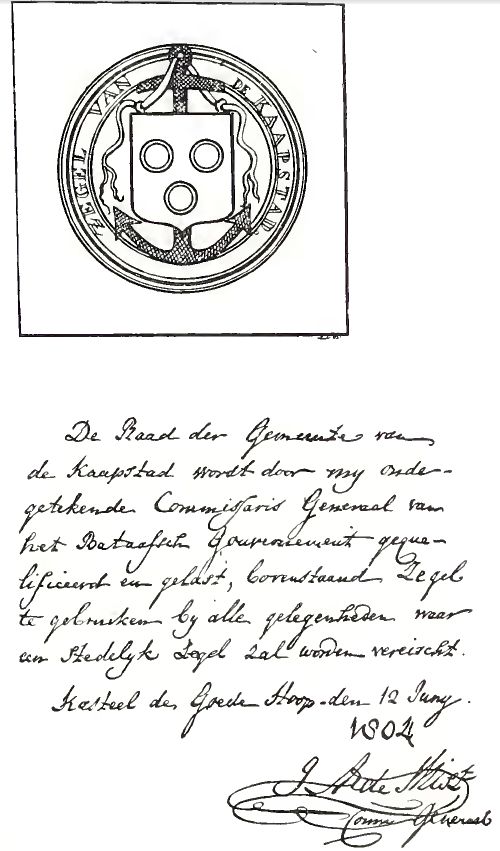 ZEGEL VAN DE KAAPSTAD
De Raad der Gemeente van
de Kaapstad wordt door my onder-
getekende Commissaris Generaal van
het Bataafsch Gouvernement gequa-
lificeerd en gelast, bovenstaand Zegel
te gebruiken by alle gelegenheden waar
een Stedelyk Zegel zal worden vereischt.
Kasteel de Goede Hoop den 12 Juny.
1804
J A de Mist
Comm Generaal